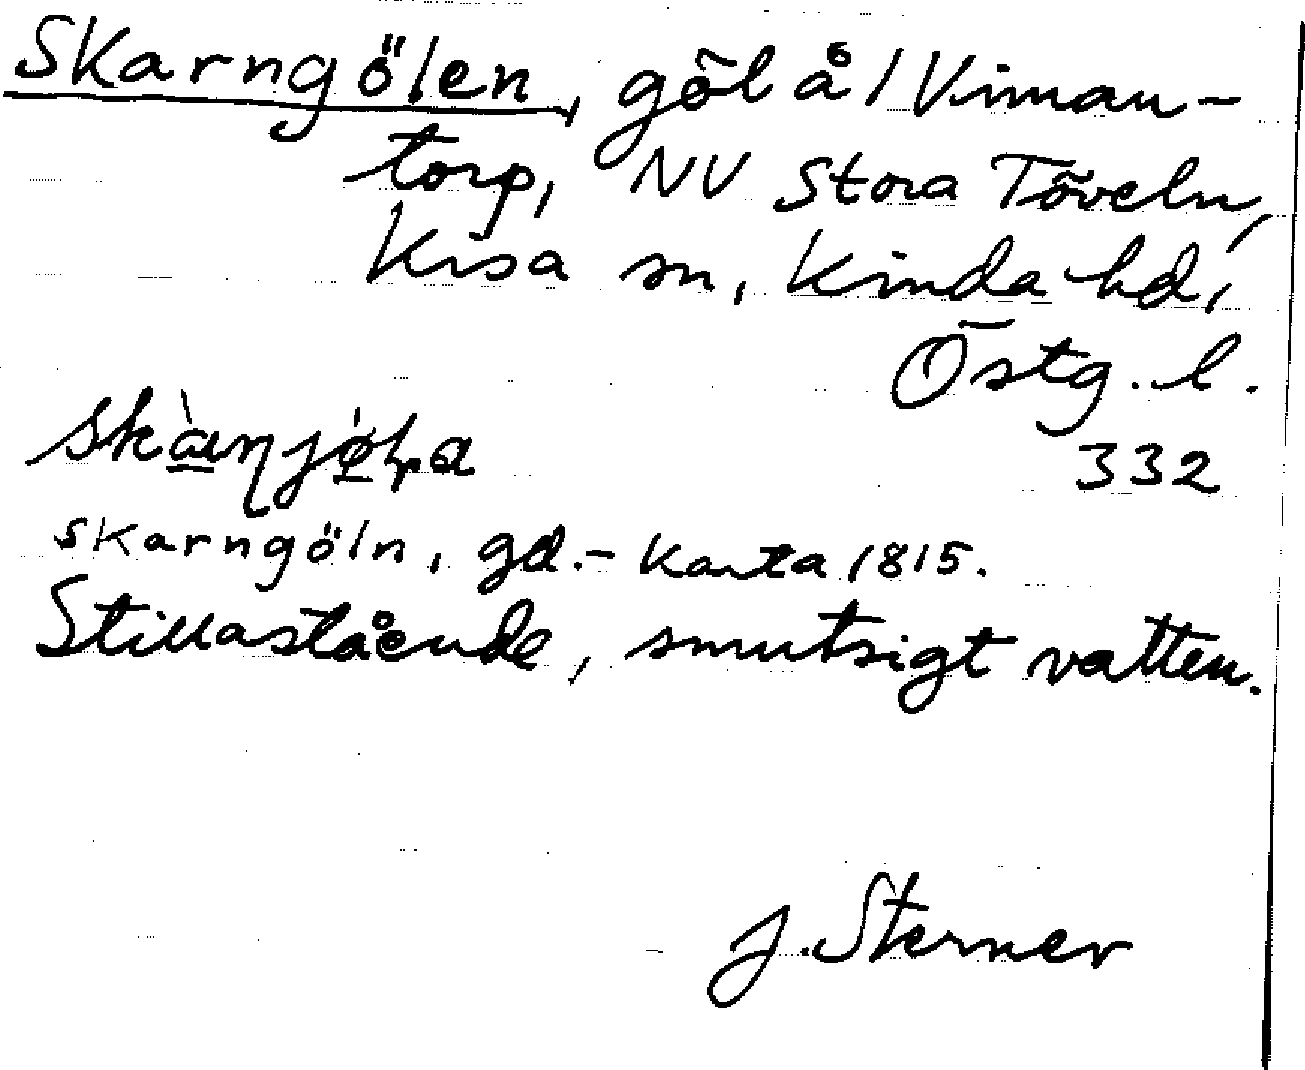 Skarngölen, göl å / Viman-
torp, NV Stora Töveln,
Kisa sn, Kinda hd,
Östg. l.
332
Skarngöln, gd. - Karta 1815.
Stillastående, smutsigt vatten.
J. Sterner